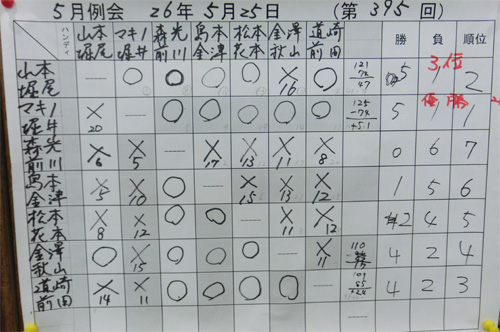 5月例会 26年5月25日 (第395回)
ハンディ 山本 堀尾 マキノ 堀井 森光 前川 馬本 金津 松本 花本 金澤 秋山 道崎 前田 勝 負 順位
山本 堀尾 — ○ ○ ○ ○ × 16 ○ 121 74 47 5 1 3位 2
マキノ 堀井 × 20 — ○ ○ ○ ○ ○ 125 -74 +51 5 1 優勝 1
森光 前川 × 6 × 5 — × 17 × 13 × 11 × 8 0 6 7
馬本 金津 × 5 × 10 ○ — × 15 × 13 × 12 1 5 6
松本 花本 × 8 × 12 ○ ○ — × 11 × 12 2 4 5
金澤 秋山 ○ × 15 ○ ○ ○ — × 11 110 4 2 4
道崎 前田 × 14 × 11 ○ ○ ○ ○ — 109 85 +24 4 2 3